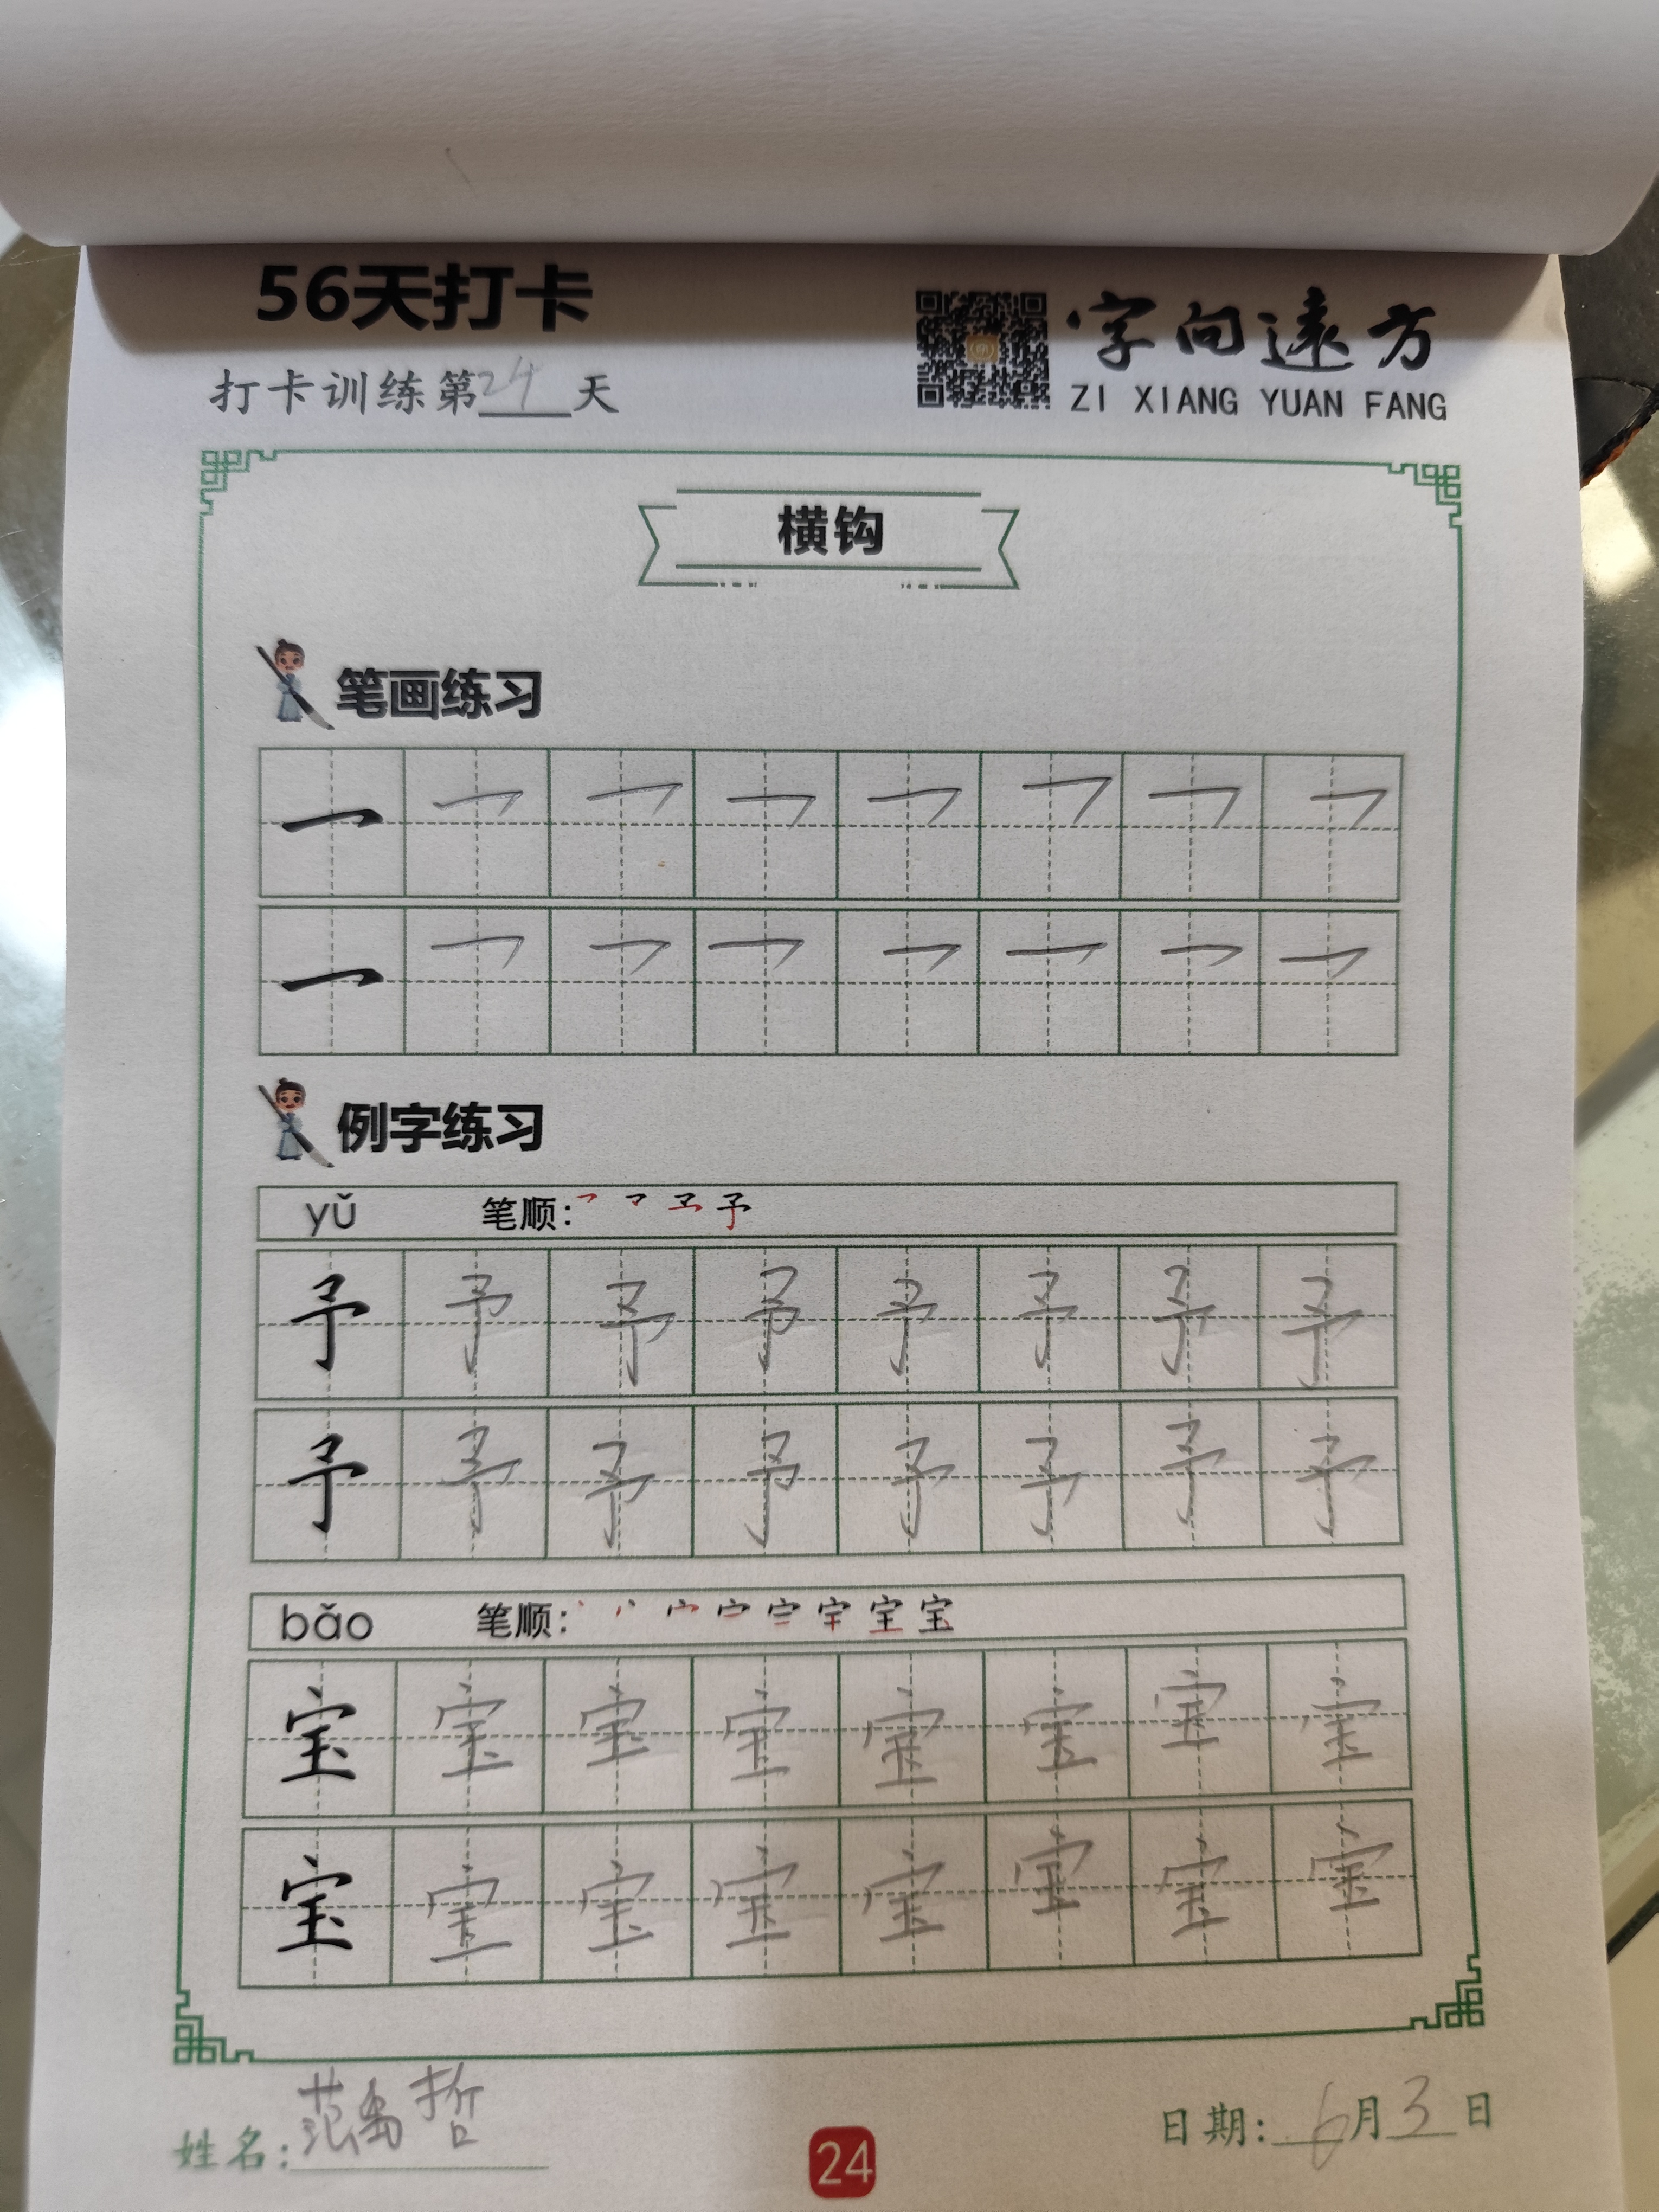 56天打卡
字向遠方
ZI XIANG YUAN FANG
打卡训练第24天
横钩
笔画练习
例字练习
yǔ 笔顺:
予 予 予 予 予 予 予 予
予 予 予 予 予 予 予 予
bǎo 笔顺:
宝 宝 宝 宝 宝 宝 宝 宝
宝 宝 宝 宝 宝 宝 宝 宝
姓名:范禹哲
24
日期:6月3日